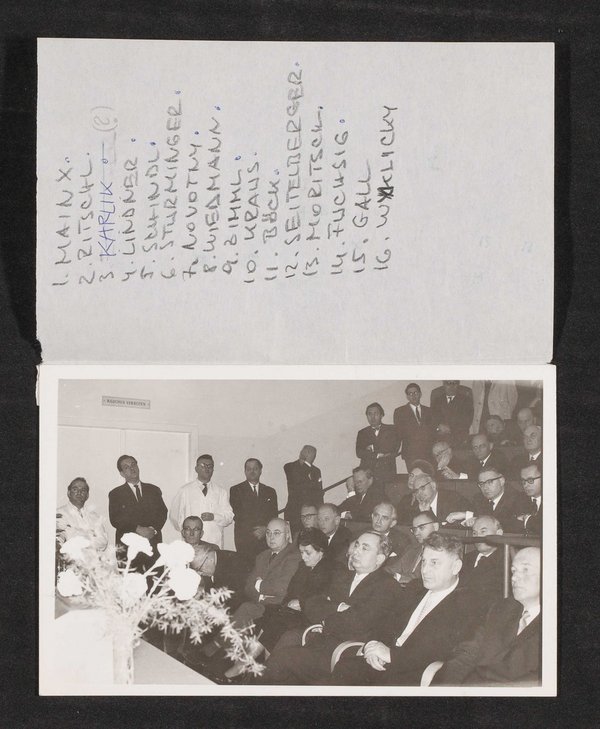 1. MAINX.
2. RITSCHL.
3. KARLIK (?)
4. LINDNER.
5. SCHINDL.
6. STURMINGER.
7. NOVOTNY.
8. WIEDMANN.
9. ZIMML.
10. KRAUS.
11. BÖCK.
12. SEITELBERGER.
13. MORITSCH.
14. FUCHSIG.
15. GALL
16. WYKLICKY
RAUCHEN VERBOTEN